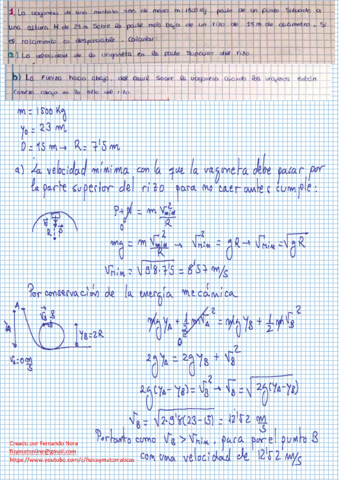 1. La vagoneta de una montaña rusa de masa m=1500 Kg, parte de un punto situado a
una altura H de 23 m sobre la parte más baja de un rizo de 15 m de diámetro. Si
el rozamiento es despreciable. Calcular:
a) La velocidad de la vagoneta en la parte superior del rizo
b) La fuerza hacia abajo del sobre la vagoneta cuando los viajeros están
cabeza abajo en lo alto del rizo.
m = 1500 Kg
y₀ = 23 m
D = 15 m → R = 7'5 m
a) La velocidad mínima con la que la vagoneta debe pasar por
la parte superior del rizo para no caer antes cumple:
P + N = m v²min / R
0
mg = m v²min / R → v²min = gR → vmin = √gR
vmin = √9'8·7'5 = 8'57 m/s
Por conservación de la energía mecánica
m g yA + 1/2 m vA² = m g yB + 1/2 m vB²
2g yA = 2g yB + vB²
2g(yA - yB) = vB² → vB = √2g(yA-yB)
A
B
yB = 2R
v₀ = 0 m/s
vB = √2·9'8(23-15) = 12'52 m/s
Por tanto como vB > vmin, pasa por el punto B
con una velocidad de 12'52 m/s
Creado por Fernando Nora
fisymatonline@gmail.com